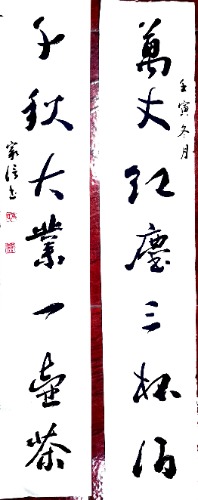 萬丈红塵三杯酒
壬寅冬月
千秋大業一壺茶
家信书